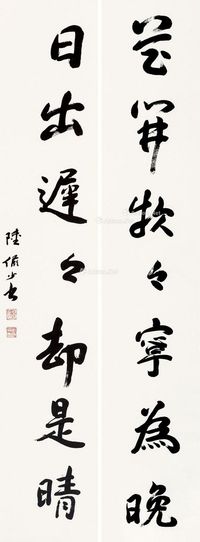 花開款々寧為晚
日出遲々却是晴
陸儼少書